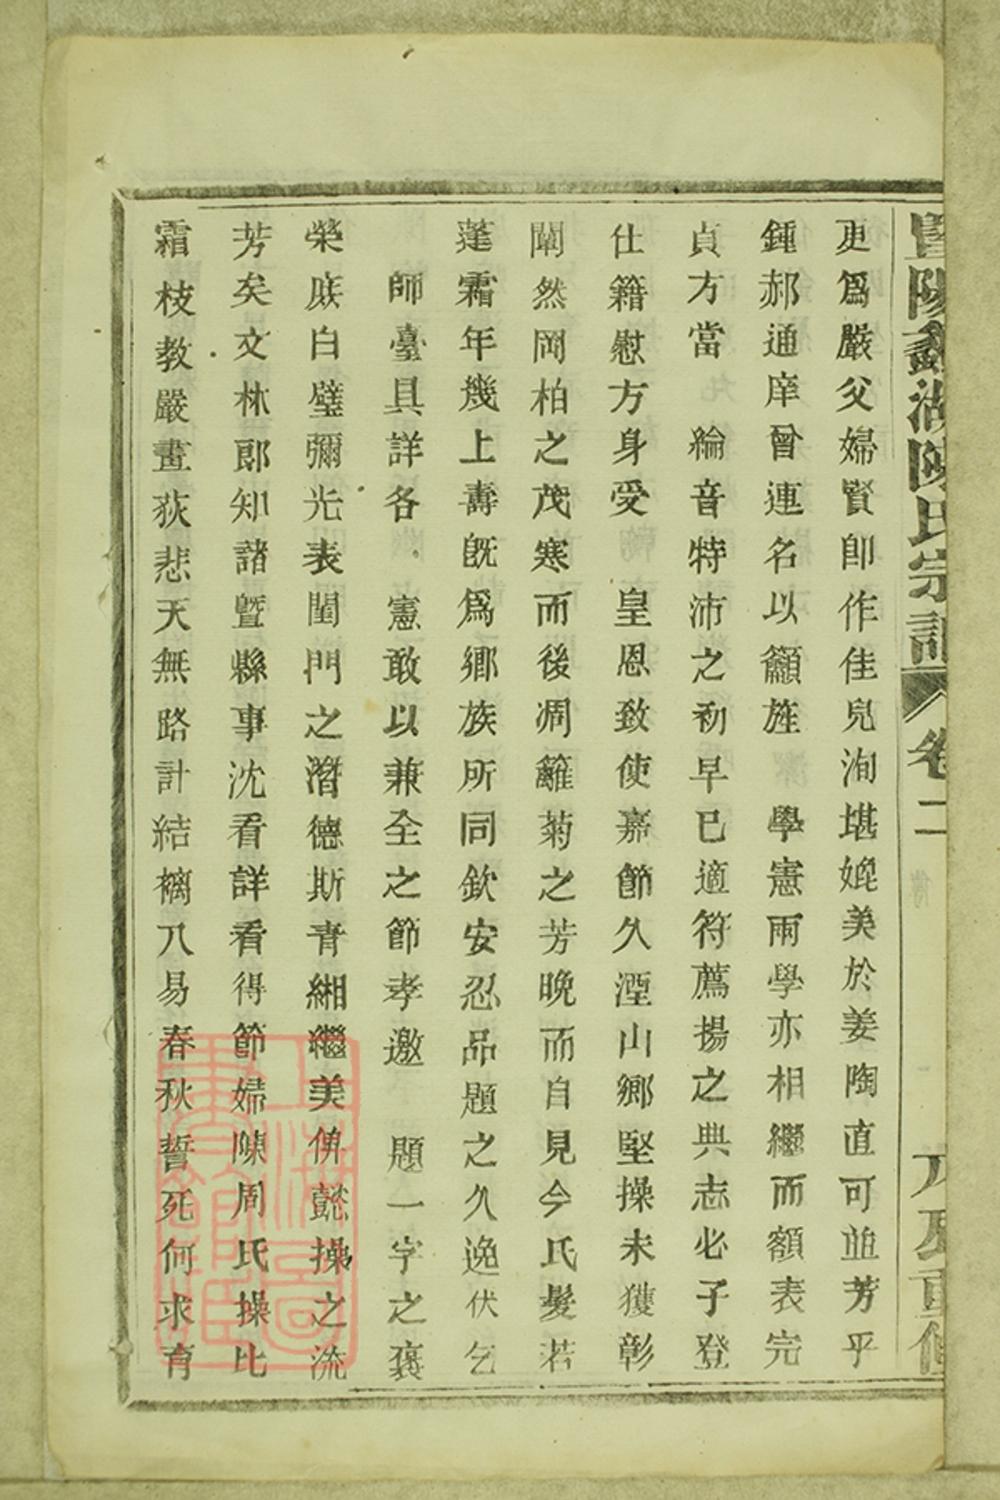 暨陽鑫湖陳氏宗譜 卷二
更爲嚴父婦賢卽作佳兒洵堪媲美於姜陶直可並芳乎
鍾郝通庠曾連名以籲旌 學憲兩學亦相繼而額表完
貞方當 綸音特沛之初早已適符薦揚之典志必子登
仕籍慰方身受 皇恩致使嘉節久湮山鄉堅操未獲彰
闡然岡柏之茂寒而後凋籬菊之芳晚而自見今氏髮若
蓬霜年幾上壽旣爲鄉族所同欽安忍品題之久逸伏乞
師臺具詳各 憲敢以兼全之節孝邀 題一字之褒
榮庶白璧彌光表閨門之潛德斯青緗繼美俾懿操之流
芳矣文林郎知諸暨縣事沈看詳看得節婦陳周氏操比
霜枝教嚴畫荻悲天無路計結褵八易春秋誓死何求育